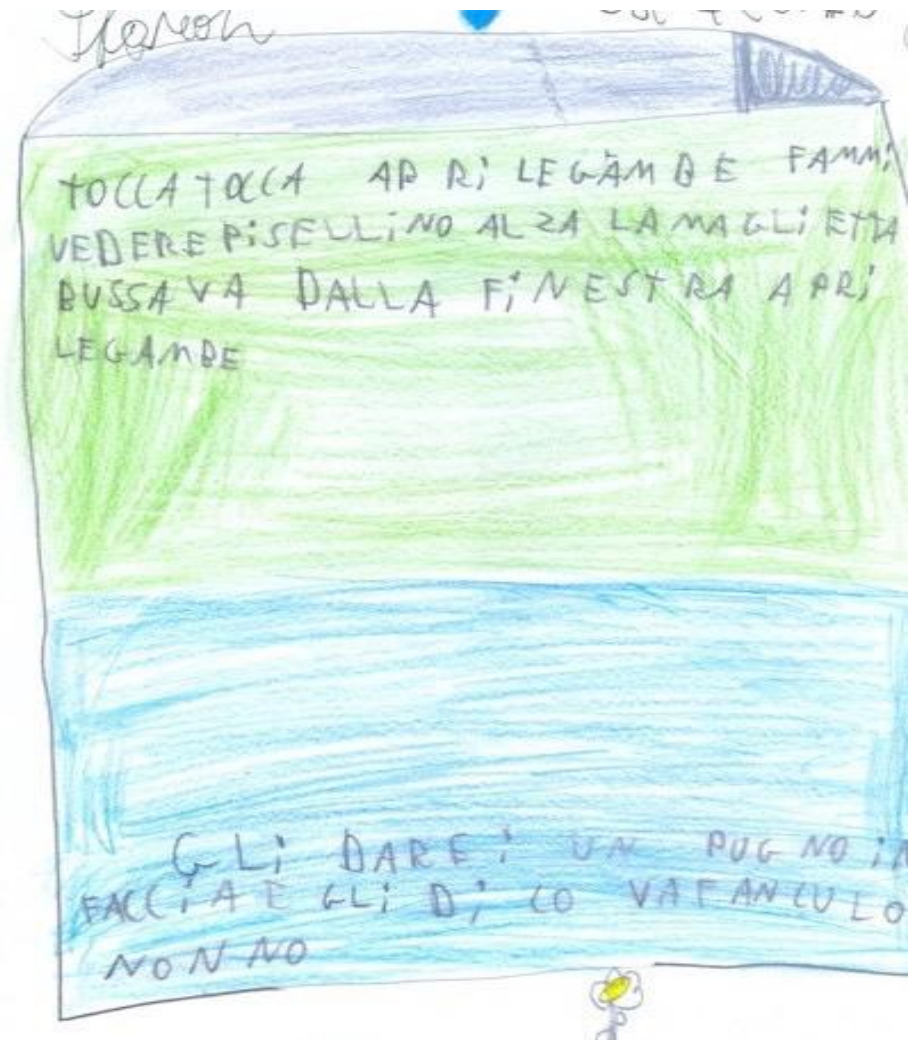 TOCCA TOCCA APRi LE GAMBE FAMMi
VEDERE PiSELLiNO ALZA LA MAGLiETTA
BUSSAVA DALLA FiNESTRA APRi
LE GAMBE
GLi DAREi UN PUGNO iN
FACCiA E GLi DiCO VAFANCULO
NONNO